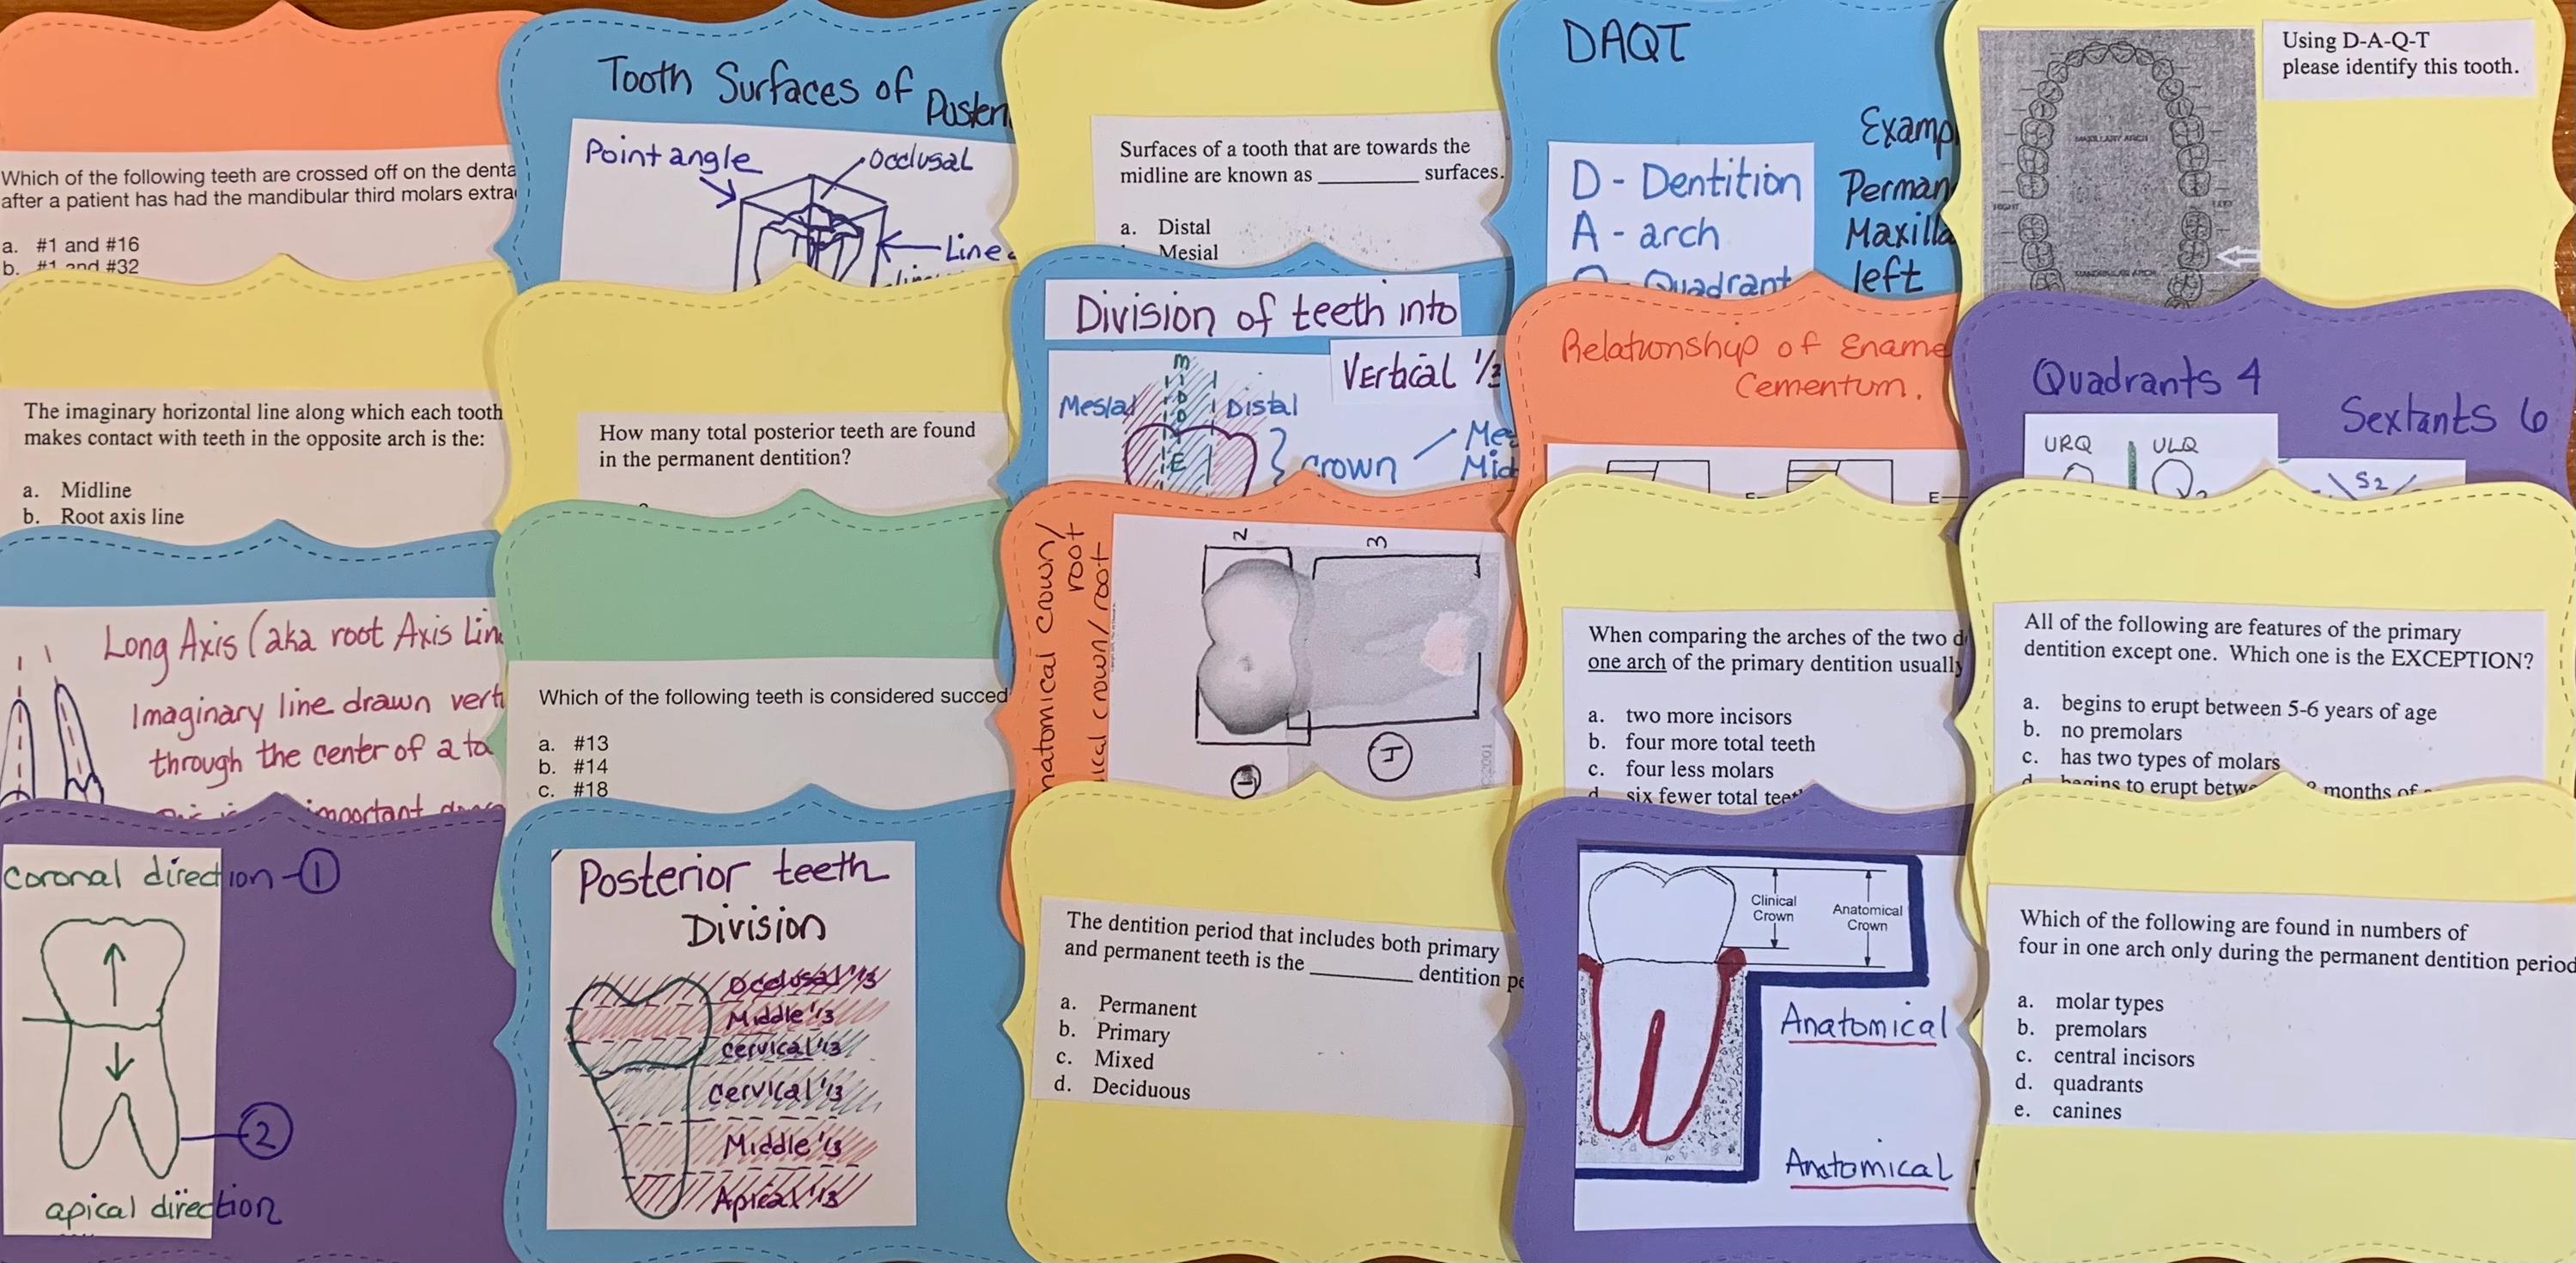 Which of the following teeth are crossed off on the denta
after a patient has had the mandibular third molars extra
a. #1 and #16
b. #1 and #32
Tooth Surfaces of
Posteri
Point angle
Occlusal
Line
Surfaces of a tooth that are towards the
midline are known as _________ surfaces.
a. Distal
Mesial
DAQT
Examp
D - Dentition
A - arch
Quadrant
Perman
Maxilla
left
Using D-A-Q-T
please identify this tooth.
MAXILLARY ARCH
RIGHT
LEFT
MANDIBULAR ARCH
The imaginary horizontal line along which each tooth
makes contact with teeth in the opposite arch is the:
a. Midline
b. Root axis line
How many total posterior teeth are found
in the permanent dentition?
Division of teeth into
Vertical 1/3
Mesial
Distal
crown
Mes
Mid
Relationship of Ename
Cementum.
E
E
Quadrants 4
Sextants 6
URQ
ULQ
S2
Long Axis (aka root Axis Line
Imaginary line drawn verti
through the center of a to
important
Which of the following teeth is considered succed
a. #13
b. #14
c. #18
natomical crown/
root
ical crown/root
2
3
1
4
When comparing the arches of the two d
one arch of the primary dentition usually
a. two more incisors
b. four more total teeth
c. four less molars
d. six fewer total teet
All of the following are features of the primary
dentition except one. Which one is the EXCEPTION?
a. begins to erupt between 5-6 years of age
b. no premolars
c. has two types of molars
d. begins to erupt betwe
months of
coronal direction - 1
2
apical direction
Posterior teeth
Division
Occlusal 1/3
Middle 1/3
cervical 1/3
Cervical 1/3
Middle 1/3
Apical 1/3
The dentition period that includes both primary
and permanent teeth is the _________ dentition pe
a. Permanent
b. Primary
c. Mixed
d. Deciduous
Clinical
Crown
Anatomical
Crown
Anatomical
Anatomical
Which of the following are found in numbers of
four in one arch only during the permanent dentition period
a. molar types
b. premolars
c. central incisors
d. quadrants
e. canines